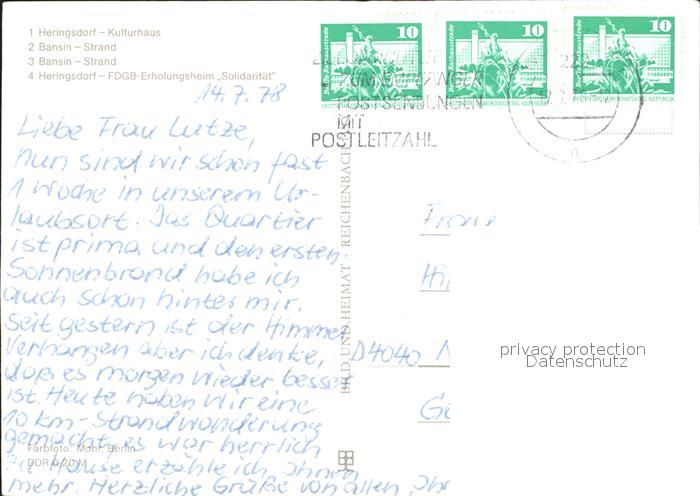 1 Heringsdorf – Kulturhaus
2 Bansin – Strand
3 Bansin – Strand
4 Heringsdorf – FDGB-Erholungsheim „Solidarität"
10
10
10
Berlin, Rathausstraße
Berlin, Rathausstraße
Berlin, Rathausstraße
DEUTSCHE DEMOKRATISCHE REPUBLIK
ZUM EMPFÄNGER
POSTSENDUNGEN
MIT
POSTLEITZAHL
14.7.78
Liebe Frau Lutze,
nun sind wir schon fast
1 Woche in unserem Ur-
laubsort. Das Quartier
ist prima und den ersten
Sonnenbrand habe ich
auch schon hinter mir.
Seit gestern ist der Himmel
verhangen aber ich denke,
daß es morgen wieder besser
ist. Heute haben wir eine
10 km-Strandwanderung
gemacht, es war herrlich
Zu Hause erzähle ich Ihnen
mehr. Herzliche Grüße von allen, Ihr
Farbfoto: Mohr, Berlin
DDR 0,20 M
BILD UND HEIMAT REICHENBACH
D4040
privacy protection
Datenschutz